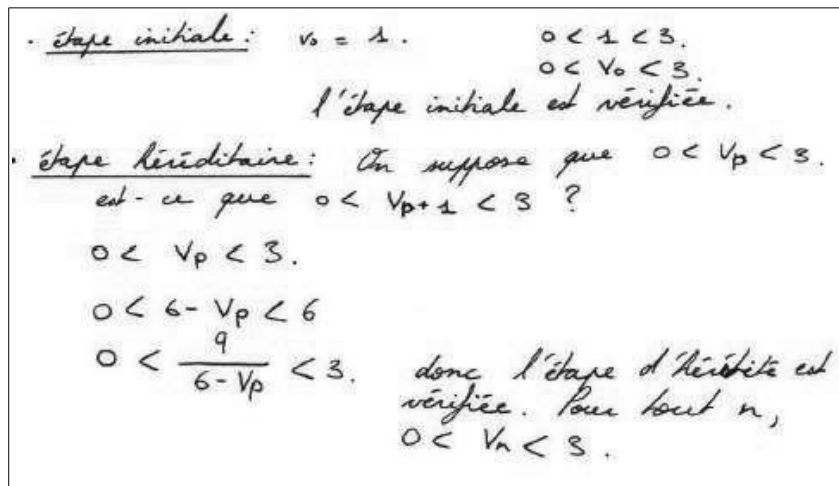 . étape initiale : v₀ = 1. 0 < 1 < 3.
0 < V₀ < 3.
l'étape initiale est vérifiée.
. étape héréditaire : On suppose que 0 < Vp < 3.
est-ce que 0 < Vp+1 < 3 ?
0 < Vp < 3.
0 < 6 - Vp < 6
0 < 9/(6 - Vp) < 3. donc l'étape d'hérédité est
vérifiée. Pour tout n,
0 < Vn < 3.